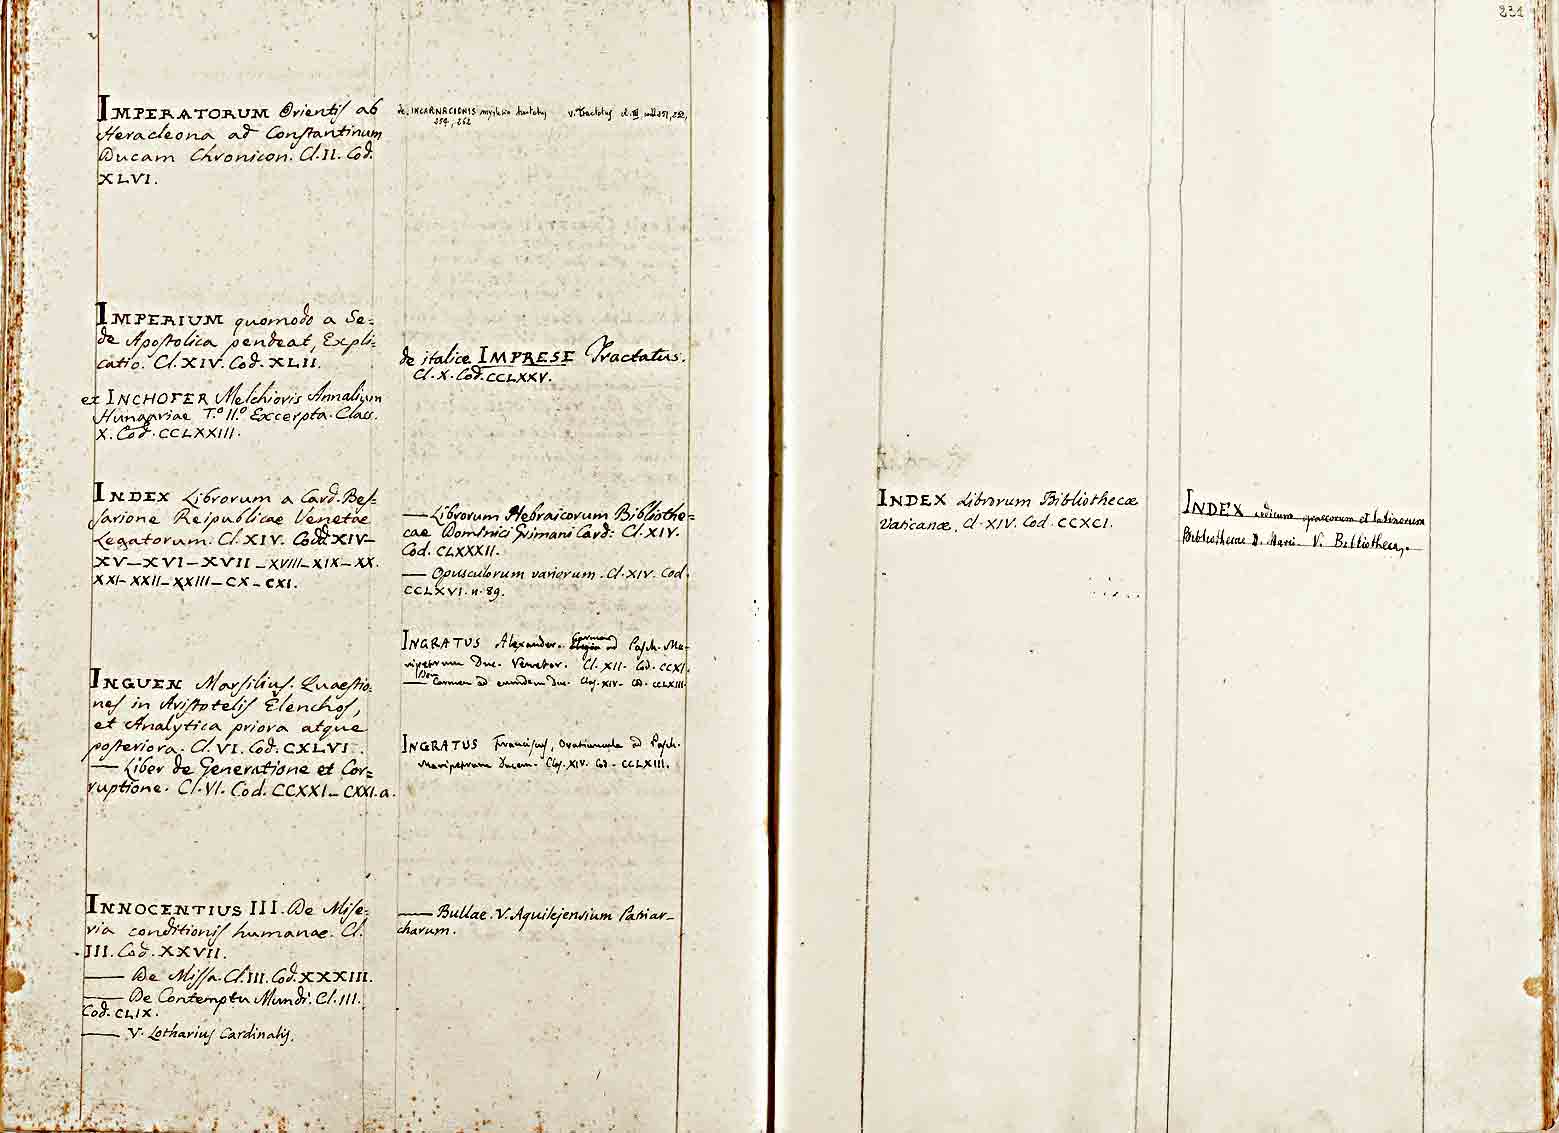 231
IMPERATORUM Orientis ab
Heracleona ad Constantinum
Ducam Chronicon. Cl. II. Cod.
XLVI.
IMPERIUM quomodo a Se=
de Apostolica pendeat, Expli=
catio. Cl. XIV. Cod. XLII.
et INCHOFER Melchioris Annalium
Hungariae T.º II.º Excerpta. Class.
X. Cod. CCLXXIII.
INDEX Librorum a Card. Bes=
sarione Reipublicae Venetae
Legatorum. Cl. XIV. Codd. XIV–
XV–XVI–XVII–XVIII–XIX–XX.
XXI–XXII–XXIII–CX–CXI.
INGUEN Marsilius. Quaestio=
nes in Aristotelis Elenchos,
et Analytica priora atque
posteriora. Cl. VI. Cod. CXLVI.
— Liber de Generatione et Cor=
ruptione. Cl. VI. Cod. CCXXI–CXXI.a.
INNOCENTIUS III. De Mise=
ria conditionis humanae. Cl.
III. Cod. XXVII.
— De Missa. Cl. III. Cod. XXXIII.
— De Contemptu Mundi. Cl. III.
Cod. CLIX.
— V. Lotharius Cardinalis.
de INCARNACIONIS mysterio tractatus v. Tractatus cl. III, codd 251, 252,
254, 262
de italice IMPRESE Tractatus.
Cl. X. Cod. CCLXXV.
— Librorum Hebraicorum Bibliothe=
cae Dominici Grimani Card: Cl. XIV.
Cod. CLXXXII.
— Opusculorum variorum. Cl. XIV. Cod.
CCLXVI. n. 89.
INGRATUS Alexander. Carmen ad Pasch. Ma-
ripetrum Duc. Venetor. Cl. XII. Cod. CCXI.
— Carmen ad eumdem Duc. Clas. XIV. Cod. CCLXIII.
INGRATUS Franciscus, Oratiuncula ad Pasch.
Maripetrum Ducem. Clas. XIV. Cod. CCLXIII.
— Bullae. V. Aquilejensium Patriar–
charum.
INDEX Librorum Bibliothecæ
Vaticanæ. Cl. XIV. Cod. CCXCI.
INDEX codicum graecorum et latinorum
Bibliothecae D. Marci V. Bibliotheca.